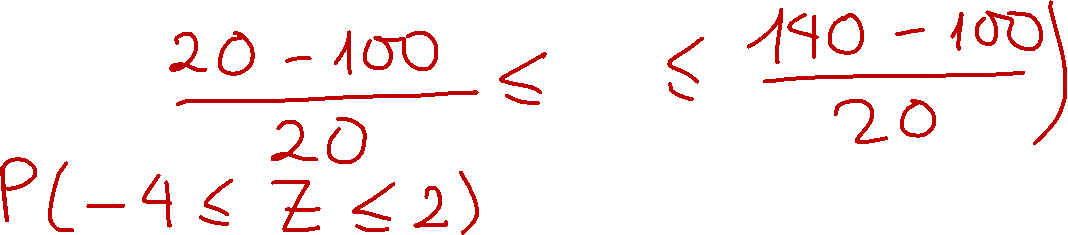 20 - 100 / 20 ≤ ≤ 140 - 100 / 20 )
P(-4 ≤ Z ≤ 2)